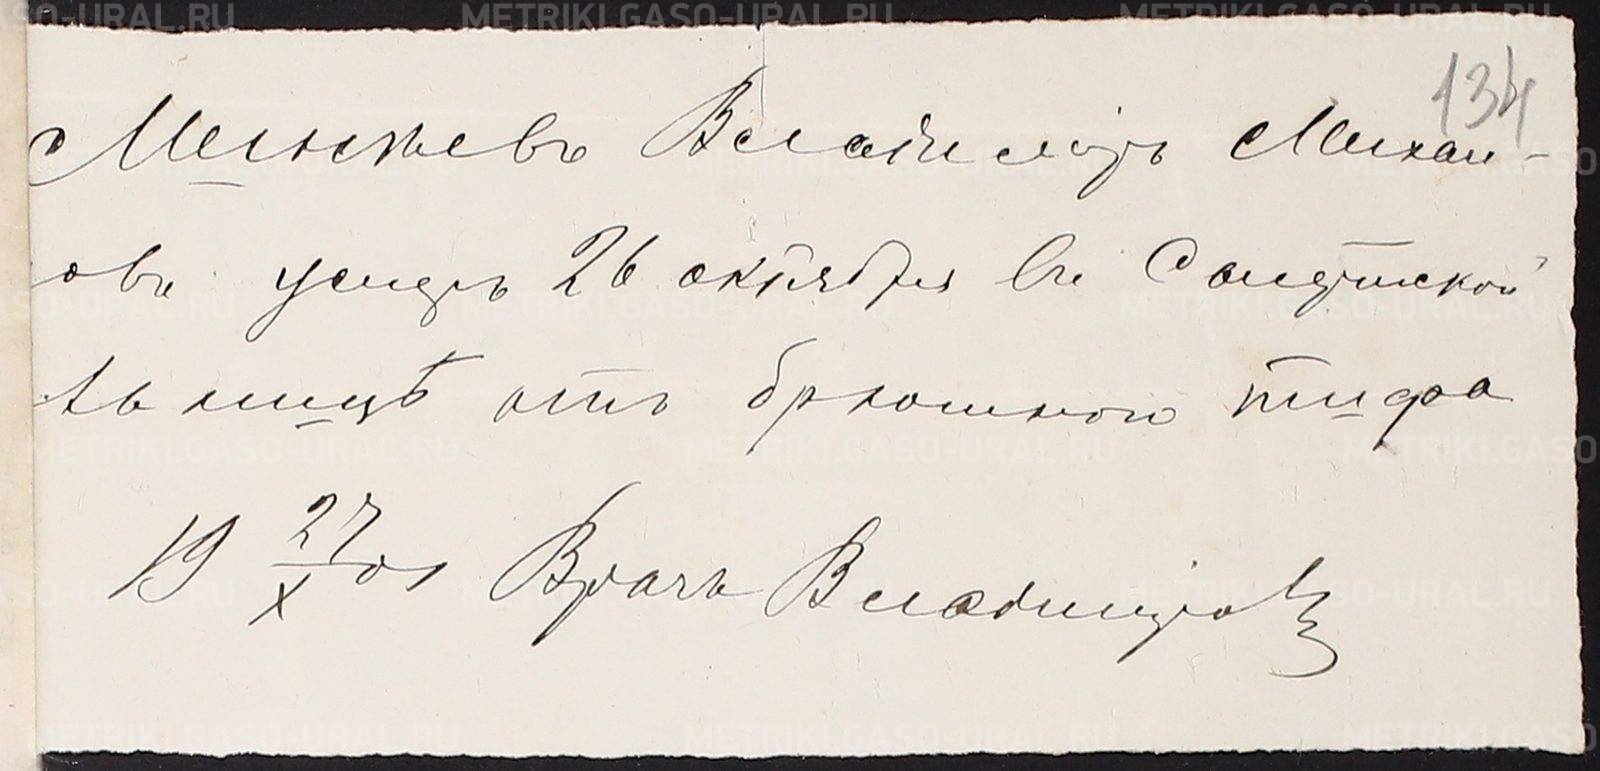 134
Меньшевъ Владимиръ Михаи-
овъ умеръ 26 октября въ Салдинской
льницѣ отъ брюшного тифа
19 27/X 01 Врачъ Владимиров
METRIKI.GASO-URAL.RU